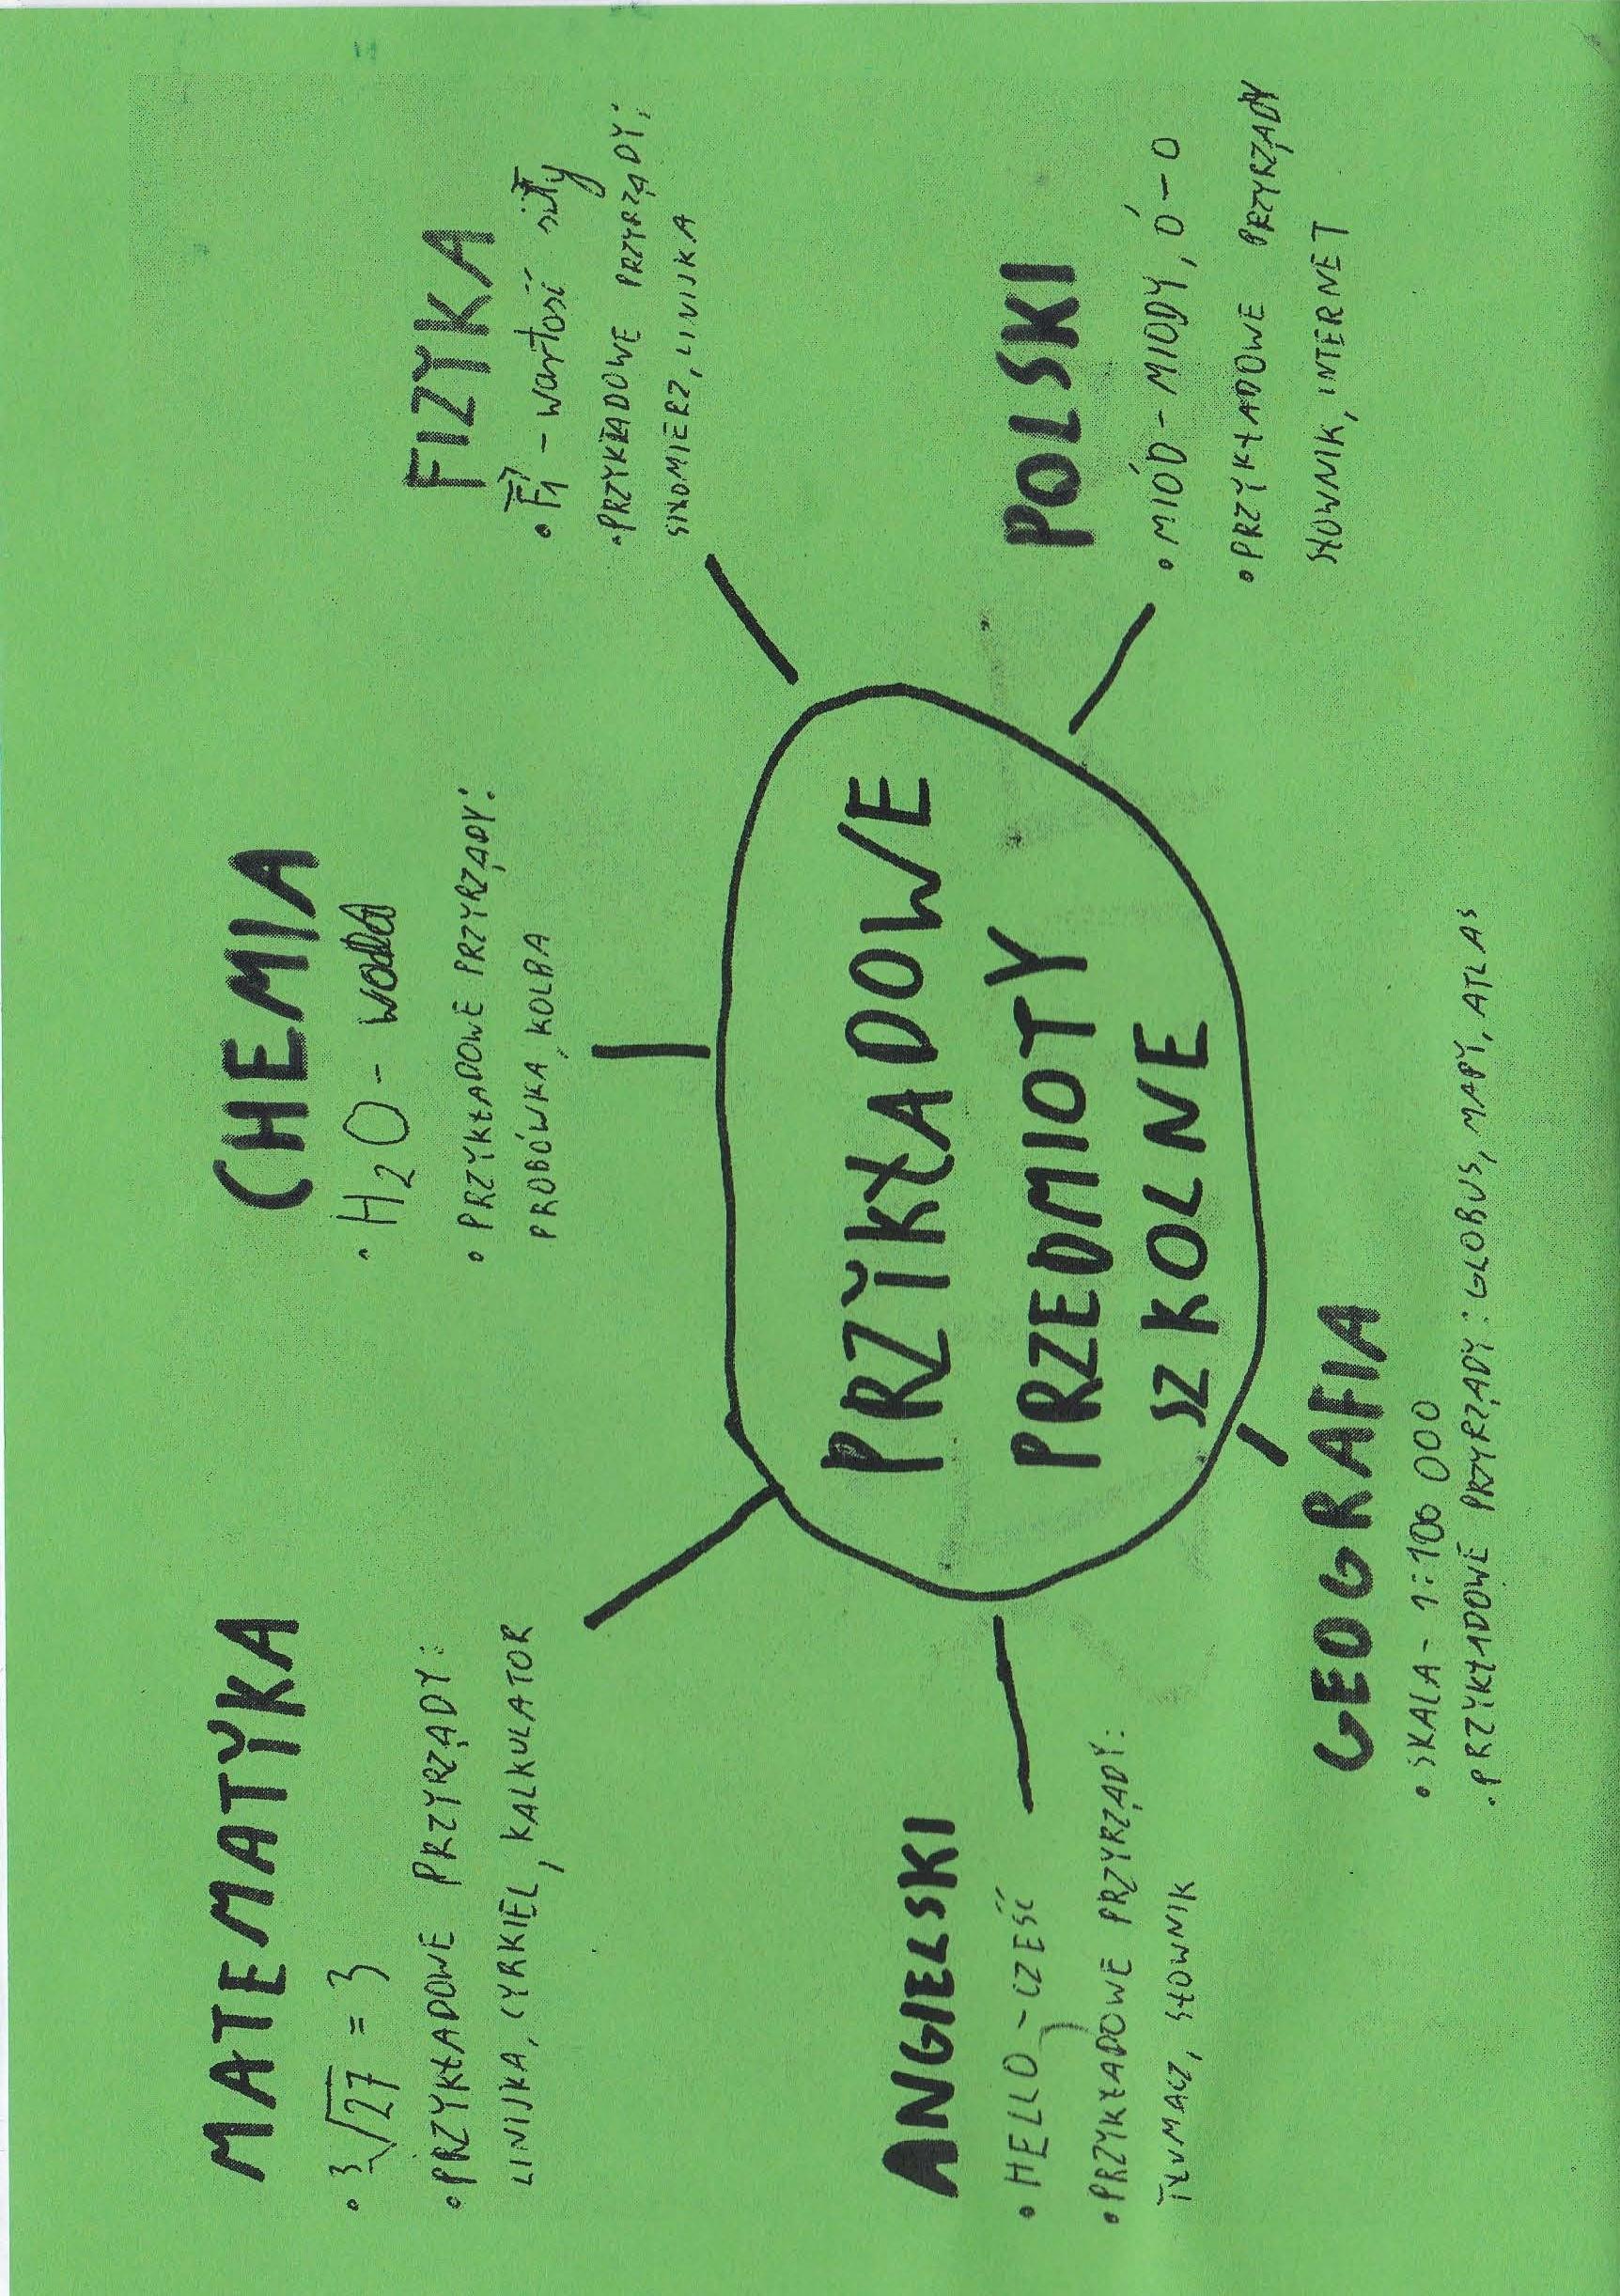 MATEMATYKA
• ³√27 = 3
• PRZYKŁADOWE PRZYRZĄDY:
LINIJKA, CYRKIEL, KALKULATOR
CHEMIA
• H₂O - woda
• PRZYKŁADOWE PRZYRZĄDY:
PROBÓWKA, KOLBA
FIZYKA
• F₁ - wartość siły
• PRZYKŁADOWE PRZYRZĄDY:
SIŁOMIERZ, LINIJKA
PRZYKŁADOWE
PRZEDMIOTY
SZKOLNE
ANGIELSKI
• HELLO - CZEŚĆ
• PRZYKŁADOWE PRZYRZĄDY:
TŁUMACZ, SŁOWNIK
GEOGRAFIA
• SKALA - 1:100 000
• PRZYKŁADOWE PRZYRZĄDY: GLOBUS, MAPY, ATLAS
POLSKI
• MIÓD - MIODY, Ó - O
• PRZYKŁADOWE PRZYRZĄDY
SŁOWNIK, INTERNET